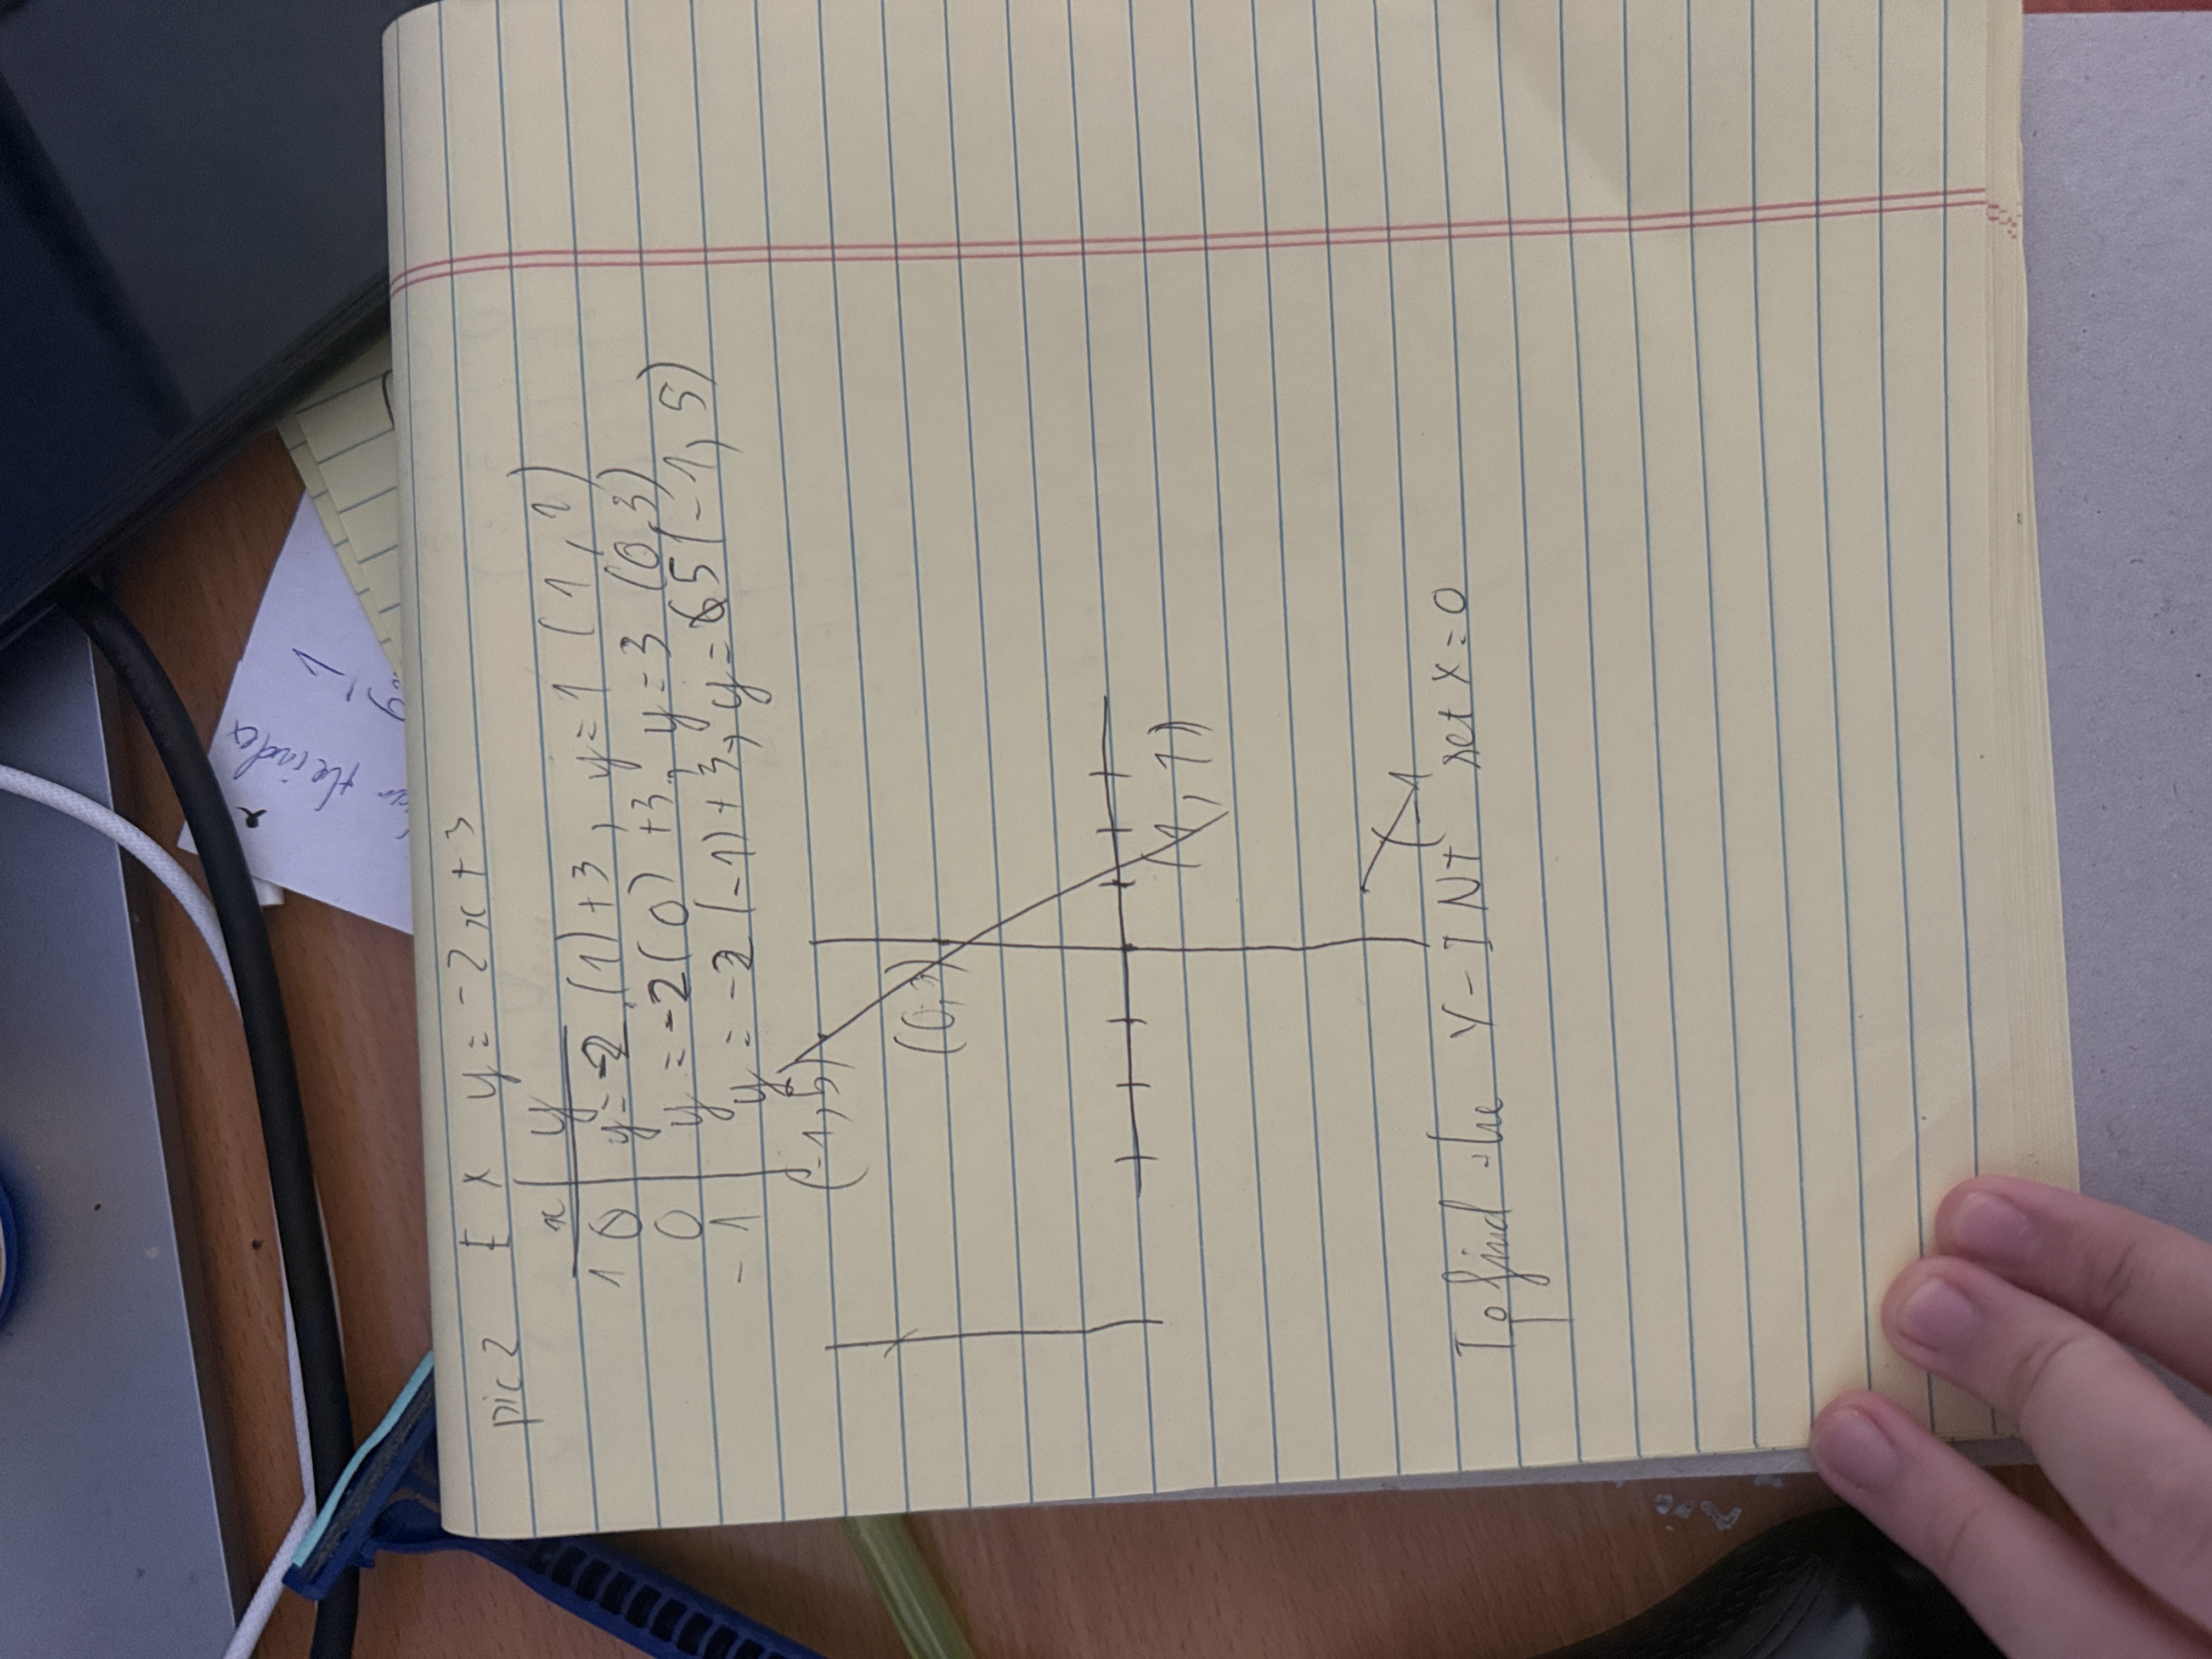 pic 2 EX y = -2x + 3
x y
1 y = -2(1) + 3, y = 1 (1, 1)
0 y = -2(0) + 3, y = 3 (0, 3)
-1 y = -2(-1) + 3, y = 5 (-1, 5)
(-1, 5)
(0, 3)
(1, 1)
(-1
To find the Y-INt set x = 0
the index